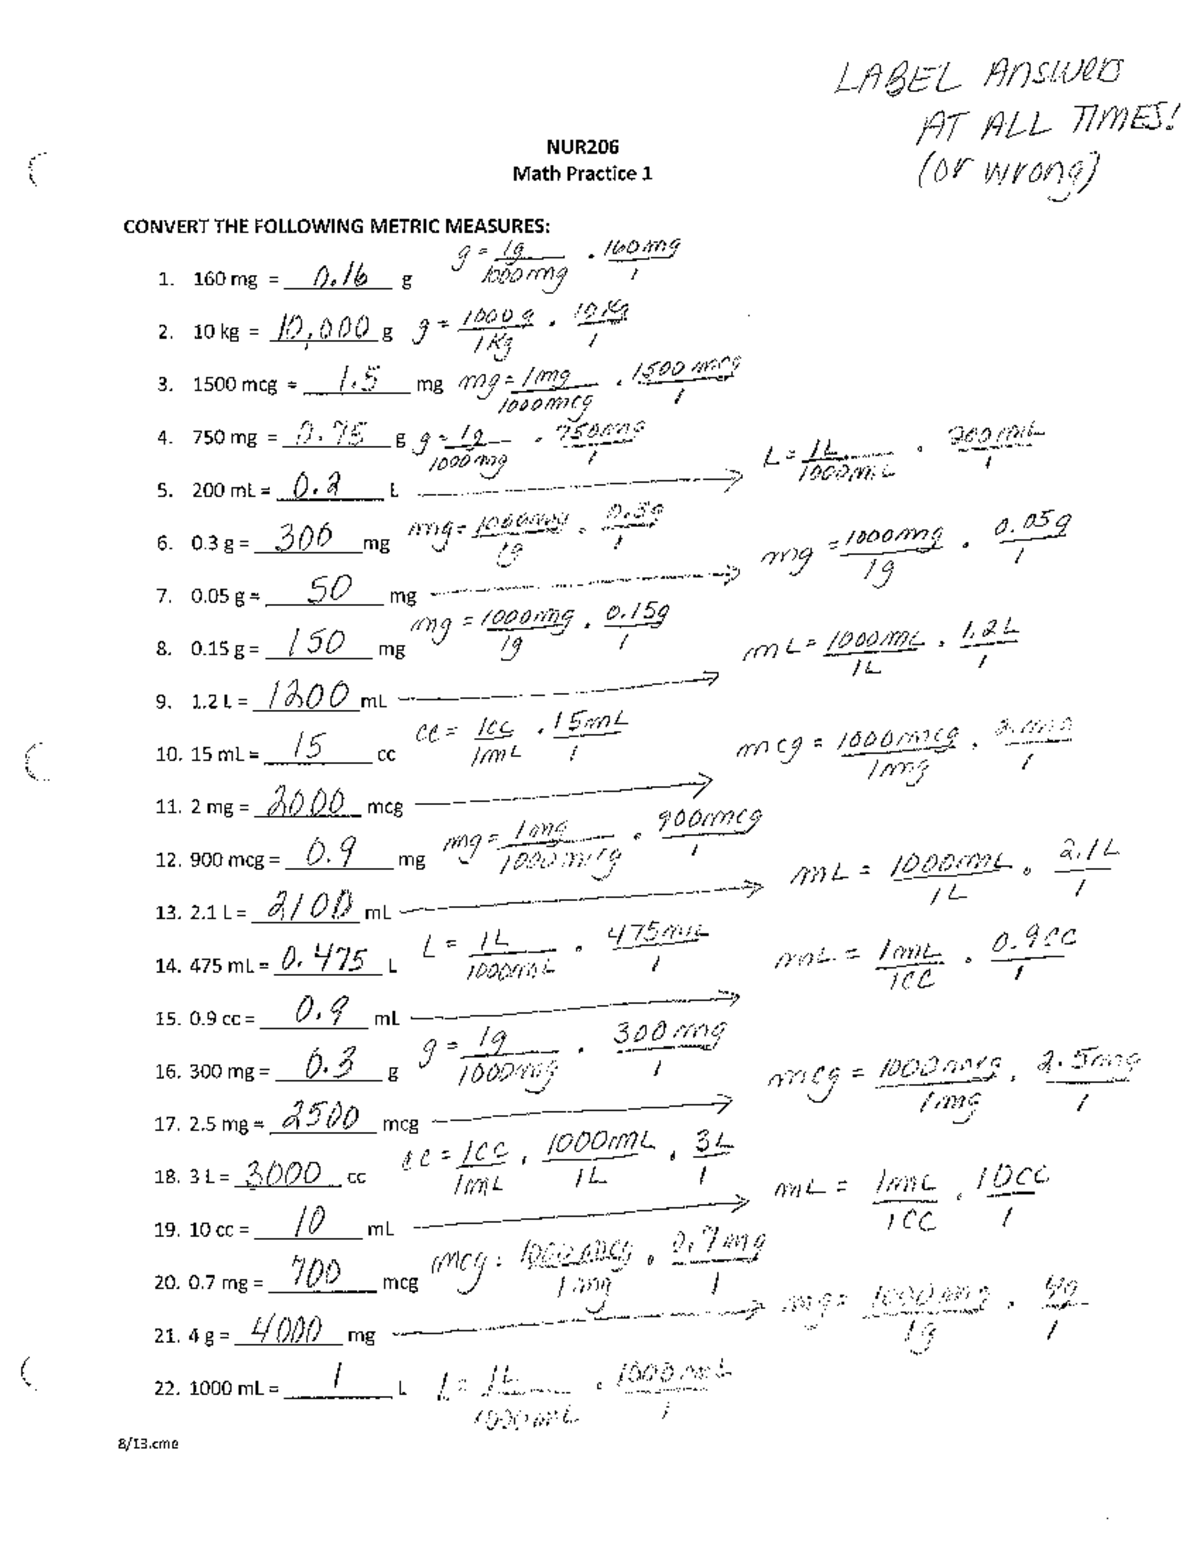 LABEL Answers
AT ALL TIMES!
(or wrong)
NUR206
Math Practice 1
CONVERT THE FOLLOWING METRIC MEASURES:
1. 160 mg = 0.16 g g = 1g/1000mg · 160mg/1
2. 10 kg = 10,000 g g = 1000g/1Kg · 10Kg/1
3. 1500 mcg = 1.5 mg mg = 1mg/1000mcg · 1500mcg/1
4. 750 mg = 0.75 g g = 1g/1000mg · 750mg/1
5. 200 mL = 0.2 L → L = 1L/1000mL · 200mL/1
6. 0.3 g = 300 mg mg = 1000mg/1g · 0.3g/1
7. 0.05 g = 50 mg → mg = 1000mg/1g · 0.05g/1
8. 0.15 g = 150 mg mg = 1000mg/1g · 0.15g/1
9. 1.2 L = 1200 mL → mL = 1000mL/1L · 1.2L/1
10. 15 mL = 15 cc cc = 1cc/1mL · 15mL/1
11. 2 mg = 2000 mcg → mcg = 1000mcg/1mg ·
12. 900 mcg = 0.9 mg mg = 1mg/1000mcg · 900mcg/1
13. 2.1 L = 2100 mL → mL = 1000mL/1L · 2.1L/1
14. 475 mL = 0.475 L L = 1L/1000mL · 475mL/1
15. 0.9 cc = 0.9 mL → mL = 1mL/1CC · 0.9cc/1
16. 300 mg = 0.3 g g = 1g/1000mg · 300mg/1
17. 2.5 mg = 2500 mcg → mcg = 1000mcg/1mg · 2.5mg/1
18. 3 L = 3000 cc cc = 1CC/1mL · 1000mL/1L · 3L/1
19. 10 cc = 10 mL → mL = 1mL/1CC · 10CC/1
20. 0.7 mg = 700 mcg mcg = 1000mcg/1mg · 0.7mg/1
21. 4 g = 4000 mg → mg = 1000mg/1g · 4g/1
22. 1000 mL = 1 L L = 1L/1000mL · 1000mL/1
8/13.cme